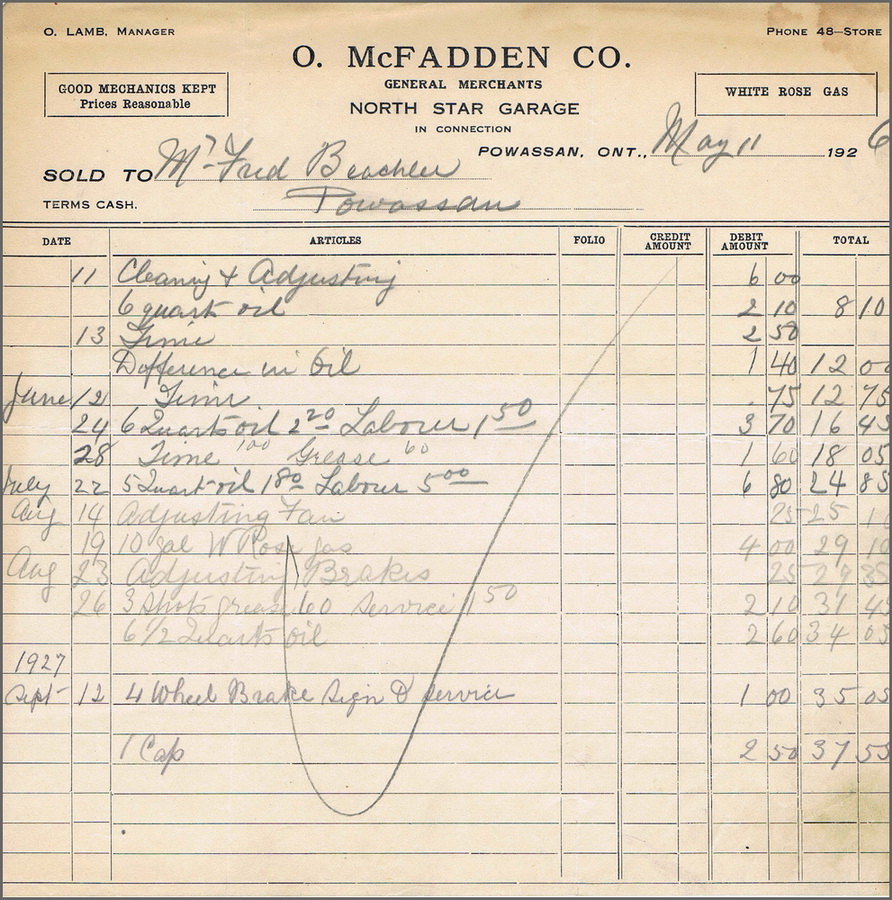 O. LAMB, MANAGER
PHONE 48—STORE
O. McFADDEN CO.
GENERAL MERCHANTS
GOOD MECHANICS KEPT
Prices Reasonable
WHITE ROSE GAS
NORTH STAR GARAGE
IN CONNECTION
POWASSAN, ONT., May 11 1926
SOLD TO Mr Fred Beachler
TERMS CASH. Powassan
DATE ARTICLES FOLIO CREDIT AMOUNT DEBIT AMOUNT TOTAL
11 Cleaning & Adjusting 6 00
6 quart oil 2 10 8 10
13 Time 2 50
Difference in Oil 1 40 12 00
June 12 Time .75 12 75
24 6 Quarts oil 2 20 Labour 1 50 3 70 16 45
28 Time 1 00 Grease 60 1 60 18 05
July 22 5 Quart oil 1 80 Labour 5 00 6 80 24 85
Aug 14 Adjusting Fan 25 25 10
19 10 gal W Rose gas 4 00 29 10
Aug 23 Adjusting Brakes 25 29 35
26 3 Shots grease 60 Service 1 50 2 10 31 45
6 1/2 Quarts oil 2 60 34 05
1927
Sept 12 4 Wheel Brake Sign & Service 1 00 35 05
1 Cap 2 50 37 55